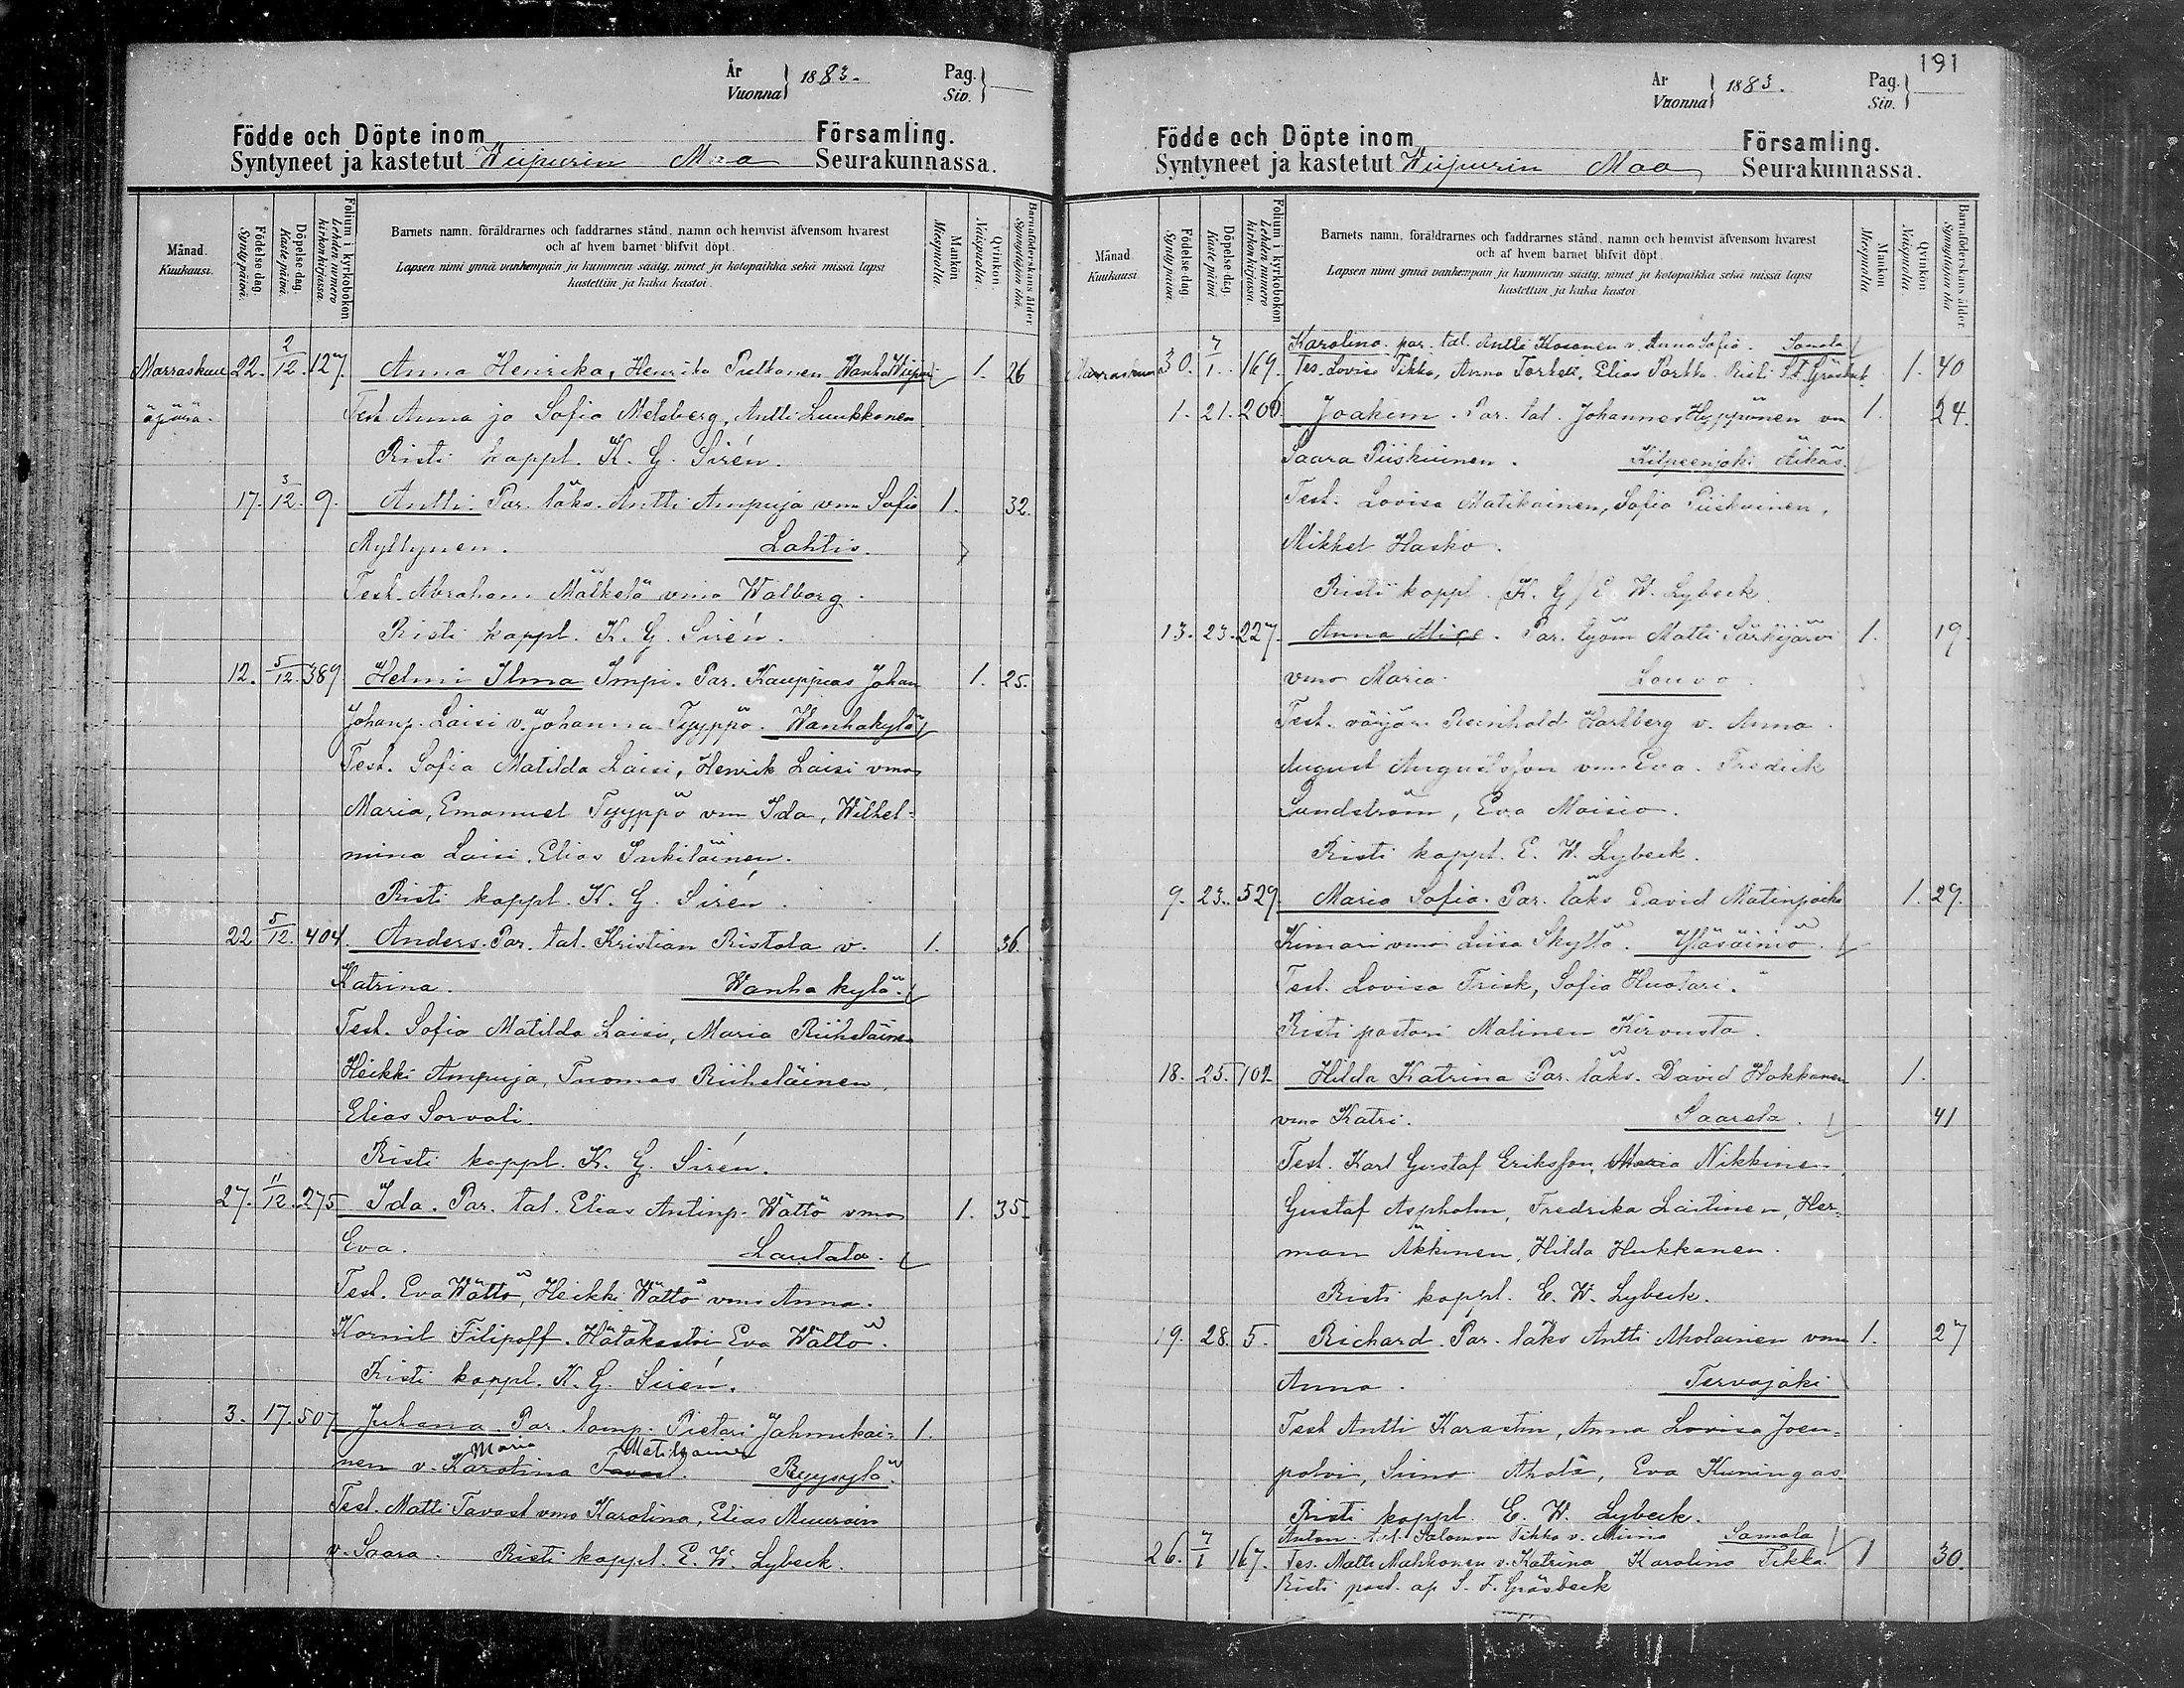 År
Vuonna } 1883.
Pag.
Siv. }
Födde och Döpte inom Församling.
Syntyneet ja kastetut Wiipurin Maa Seurakunnassa.
Månad. Kuukausi.
Födelse dag. Synty päivä.
Döpelse dag. Kaste päivä.
Folium i kyrkoboken Lehden numero kirkonkirjassa.
Barnets namn, föräldrarnes och faddrarnes stånd, namn och hemvist äfvensom hvarest
och af hvem barnet blifvit döpt.
Lapsen nimi ynnä vanhempain ja kummein sääty, nimet ja kotopaikka sekä missä lapsi
kastettiin ja kuka kastoi.
Mankön Miespuolia.
Qvinkön Naispuolia.
Barnaföderskans ålder Synnyttäjän ikä
Marraskuu 22. 2/12. 127. Anna Henrika, Henrika Pulkonen Wanha Wiipuri 1. 26
äpärä. Test. Anna ja Sofia Metsberg, Antti Luukkonen
Risti kappl. K. G. Sirén.
17. 3/12. 9. Antti. Par. läks. Antti Ampuja vmo Sofia 1. 32.
Myllynen. Lahtis.
Test. Abraham Mälkelä vmo Walborg.
Risti kappl. K. G. Sirén.
12. 5/12. 389 Helmi Ilma Impi. Par. Kauppias Johan 1. 25.
Johanp. Laisi v. Johanna Tyyppö. Wanhakylä
Test. Sofia Matilda Laisi, Henrik Laisi vmo
Maria, Emanuel Tyyppö vm Ida, Wilhel-
mina Laisi, Elias Inkiläinen.
Risti kappl. K. G. Sirén.
22 5/12. 404. Anders. Par. tal. Kristian Ristola v. 1. 36.
Katrina. Wanha kylä.
Test. Sofia Matilda Laisi, Maria Riiheläinen
Heikki Ampuja, Tuomas Riiheläinen,
Elias Sorvali.
Risti kappl. K. G. Sirén.
27. 11/12. 275 Ida. Par. tal. Elias Antinp. Wättö vmo 1. 35.
Eva. Lautala.
Test. Eva Wättö, Heikki Wättö vmo Anna.
Kornil Filipoff. Hätäkasti Eva Wättö.
Risti kappl. K. G. Sirén.
3. 17. 507 Juhana. Par. lamp. Pietari Jahmukai- 1.
Maria Matikainen
nen v. Karolina Tavast. Ryysylä.
Test. Matti Tavast vmo Karolina, Elias Muurain
v. Saara. Risti kappl. E. W. Lybeck.
191
År
Vuonna } 1883.
Pag.
Siv. }
Födde och Döpte inom Församling.
Syntyneet ja kastetut Wiipurin Maa Seurakunnassa.
Månad. Kuukausi
Födelse dag. Synty päivä.
Döpelse dag. Kaste päivä
Folium i kyrkoboken Lehden numero kirkonkirjassa.
Barnets namn, föräldrarnes och faddrarnes stånd, namn och hemvist äfvensom hvarest
och af hvem barnet blifvit döpt.
Lapsen nimi ynnä vanhempain ja kummein sääty, nimet ja kotopaikka sekä missä lapsi
kastettiin ja kuka kastoi
Mankön Miespuolia
Qvinkön Naispuolia
Barnaföderskans ålder Synnyttäjän ikä
Karolina. par. tal. Antti Kosonen v. Anna Sofia. Samola
Marraskuu 30. 7/1. 169. Tes. Lovisa Tikka, Anna Torkell, Elias Parkko. Risti S. F. Gräsbeck 1. 40
1. 21. 200 Joakim. Par. tal. Johannes Hyppönen vm 1. 24.
Saara Piiskuinen. Kilpeenjoki Äikäs.
Test. Lovisa Matikainen, Sofia Piiskuinen,
Mikkel Hasko.
Risti kappl. (K. G) E. W. Lybeck.
13. 23. 227. Anna Alice. Par. työm Matti Särkijärvi 1. 19.
vmo Maria. Louvo.
Test. värjär. Reinhold Hartberg v. Anna.
August Augustsson vm Eva. Fredrik
Sundström, Eva Maisio.
Risti kappl. E. W. Lybeck.
9. 23. 529. Maria Sofia. Par. läks David Matinpoika 1. 29.
Kimari vmo Liisa Skyttä. Yläsäiniö.
Test. Lovisa Frisk, Sofia Huotari.
Risti pastori Malinen Kirvusta.
18. 25. 102 Hilda Katrina Par. läks. David Hokkanen 1.
vmo Katri. Saarela. 41
Test. Karl Gustaf Eriksson, Maria Nikkinen,
Gustaf Aspholm, Fredrika Laitinen, Her-
man Äkkinen, Hilda Hukkanen.
Risti kappl. E. W. Lybeck.
19. 28. 5. Richard. Par. läks Antti Aholainen vmo 1. 27
Anna. Tervajoki
Test Antti Karastin, Anna Lovisa Joen-
polvi, Simo Ahola, Eva Kuningas.
Risti kappl. E. W. Lybeck.
Anton. tal. Salomon Tikka v. Miina Samola
26. 7/1 167. Tes. Matti Mahkonen v. Katrina Karolina Tikka. 1 30.
Risti past. ap S. F. Gräsbeck